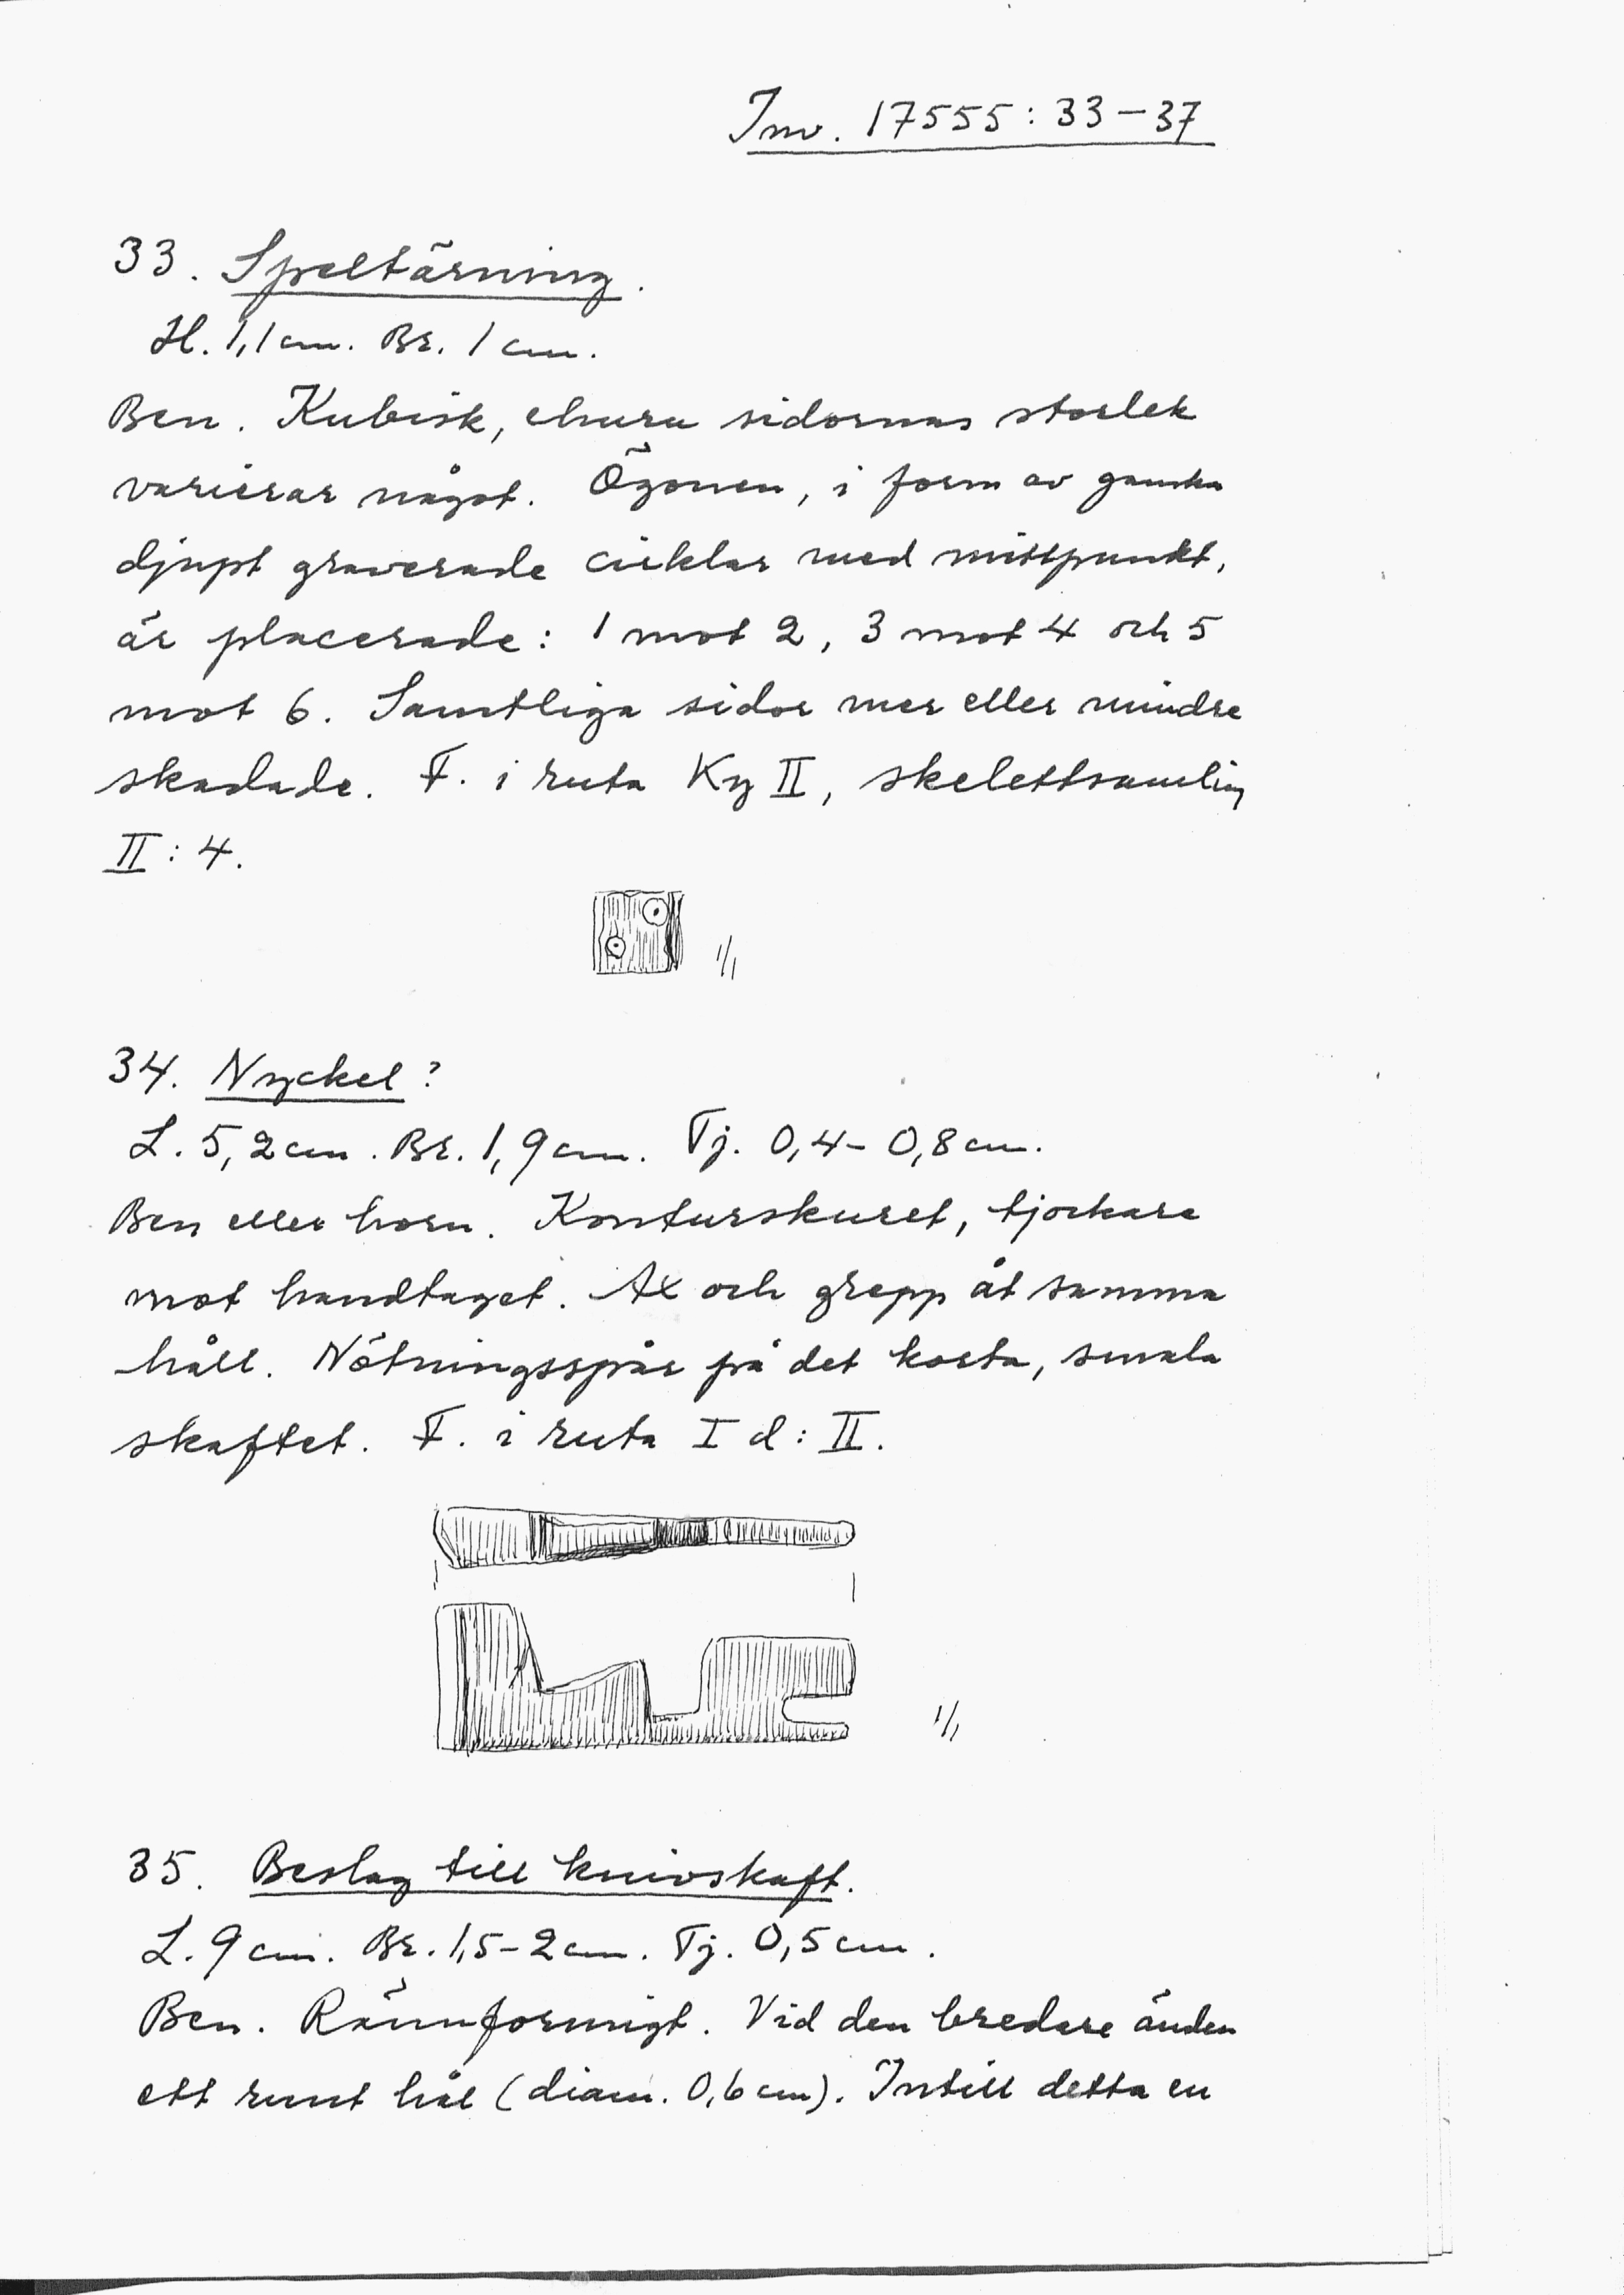 Inv. 17555: 33-37
33. Speltärning.
H. 1,1 cm. Br. 1 cm.
Ben. Kubisk, ehuru sidornas storlek
varierar något. Ögonen, i form av ganska
djupt graverade cirklar med mittpunkt,
är placerade: 1 mot 2, 3 mot 4 och 5
mot 6. Samtliga sidor mer eller mindre
skadade. F. i ruta Ky II, skelettsamling
II: 4.
1/1
34. Nyckel?
L. 5,2 cm. Br. 1,9 cm. Tj. 0,4-0,8 cm.
Ben eller horn. Konturskuret, tjockare
mot handtaget. Ax och grepp åt samma
håll. Nötningsspår på det korta, smala
skaftet. F. i ruta I d: II.
1/1
35. Beslag till knivskaft.
L. 9 cm. Br. 1,5-2 cm. Tj. 0,5 cm.
Ben. Rännformigt. Vid den bredare änden
ett runt hål (diam. 0,6 cm). Intill detta en